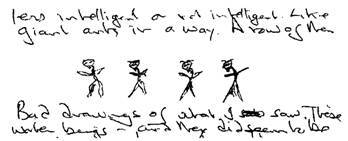 less intelligent or not intelligent. Like
giant ants in a way. A row of them
Bad drawings of what I saw. These
were beings - and they did seem to be